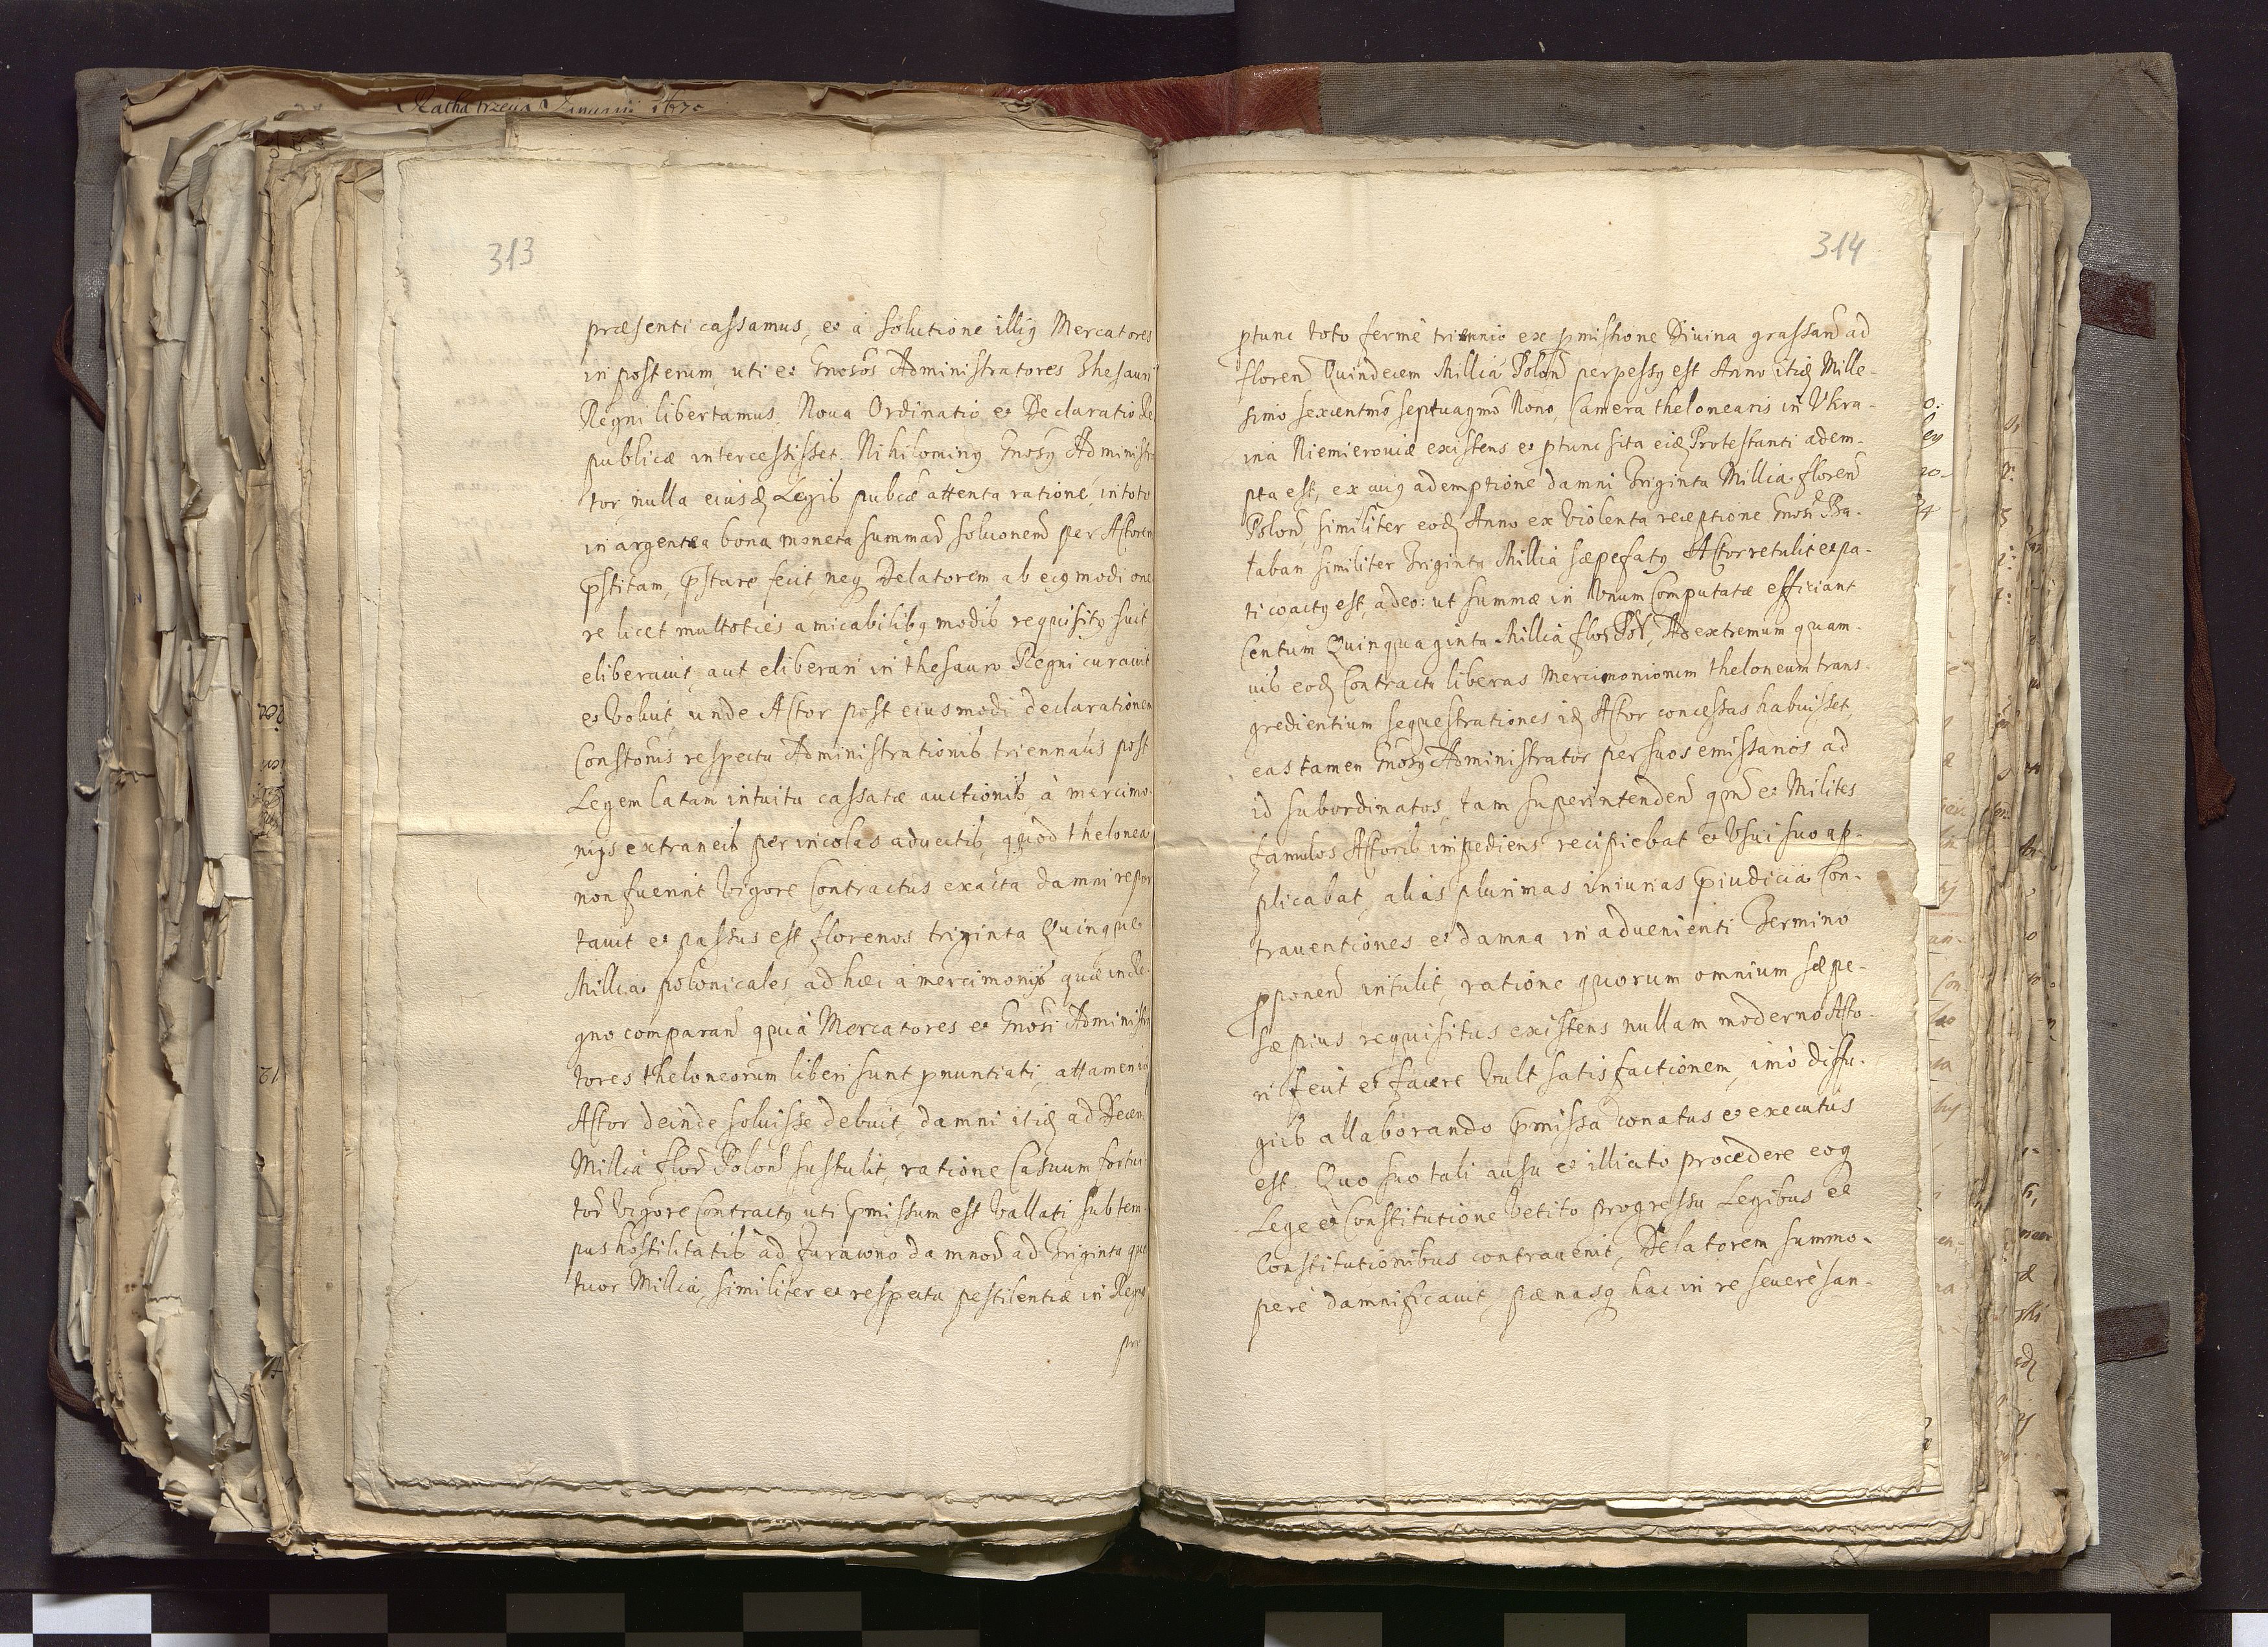 Januarii 1670
313
præsenti cassamus, et à solutione illig Mercatores
in posterum, uti et Gnosos Administratores Thesauri
Regni libertamus. Noua Ordinatio et Declaratio Re
publicæ intercessisset. Nihiloming Gnosg Administra
tor nulla eiusq Legib publcæ attenta ratione, in toto
in argentea bona moneta summae soluonem per Actorem
pstitam, pstare fecit, neq Delatorem ab eigmodi one
re licet multoties amicabilibg modib requisitg fuit
eliberauit, aut eliberari in thesauro Regni curauit
et voluit, unde Actor post eiusmodi declarationem
Constonis respectu Administrationib triennalis post
Legem latam intuitu cassatæ auctionib, à mercimo
nijs extraneib per incolas aduectib, quod thelonea
non fuerint vigore Contractus exacta damni repor
tauit et passus est florenos triginta Quinque
Millia polonicales, ad hæc à mercimonijs quæ in Re
gno comparand quà Mercatores et Gnosi Administra
tores theloneorum liberi sunt pnuntiati, attamen idq
Actor deinde soluisse debuit, damni itiq ad Decem
Millia flor Polon sustulit, ratione Casuum fortui
tor vigore Contractg uti pmissum est vallati sub tem
pus hostilitatib ad Turacono damnor ad Triginta qua
tuor Millia, similiter et respectu pestilentiæ in Regno
pro
314
ptunc toto fermè triennio ex pmissione Diuina grassan ad
floren Quindecem Millia Polon perpessg est Anno itiq Mille-
simo sexcentmo septuagmo Nono, Camera thelonearis in Vkra-
ina Niemierouiæ existens et ptunc sita eiq Protestanti adem-
pta est, ex cuig ademptione damni Triginta Millia floren
Polon, similiter eoq Anno ex violenta receptione Gnosi Ba-
taban similiter Triginta Millia sæpefatg Actor retulit et pa-
ti coactg est, adeo: ut summæ in Vnum Computatæ efficiant
Centum Quinquaginta Millia flor Pol, Ad extremum quam-
uib eoq Contractu liberas Mercimoniorum theloneum trans-
gredientium sequestrationes iq Actor concessas habuisset,
eas tamen Gnosg Administrator per suos emissarios ad
id subordinatos, tam superintenden qm et Milites
famulos Actorib impediens recipiebat et Vsui suo ap-
plicabat, alias plurimas iniurias piudicia Con-
trauentiones et damna in aduenienti Termino
pponen intulit, ratione quorum omnium sæpe-
sæpius requisitus existens nullam moderno Acto-
ri fecit et facere vult satisfactionem, imò diffu-
gieb allaborando pmissa conatus et executus
est. Quo suo tali ausu et illicito procedere eog
Lege et Constitutione vetito progressu Legibus et
Constitutionibus contrauenit, Delatorem summo-
perè damnificauit, pænasg hac in re seuerè san-